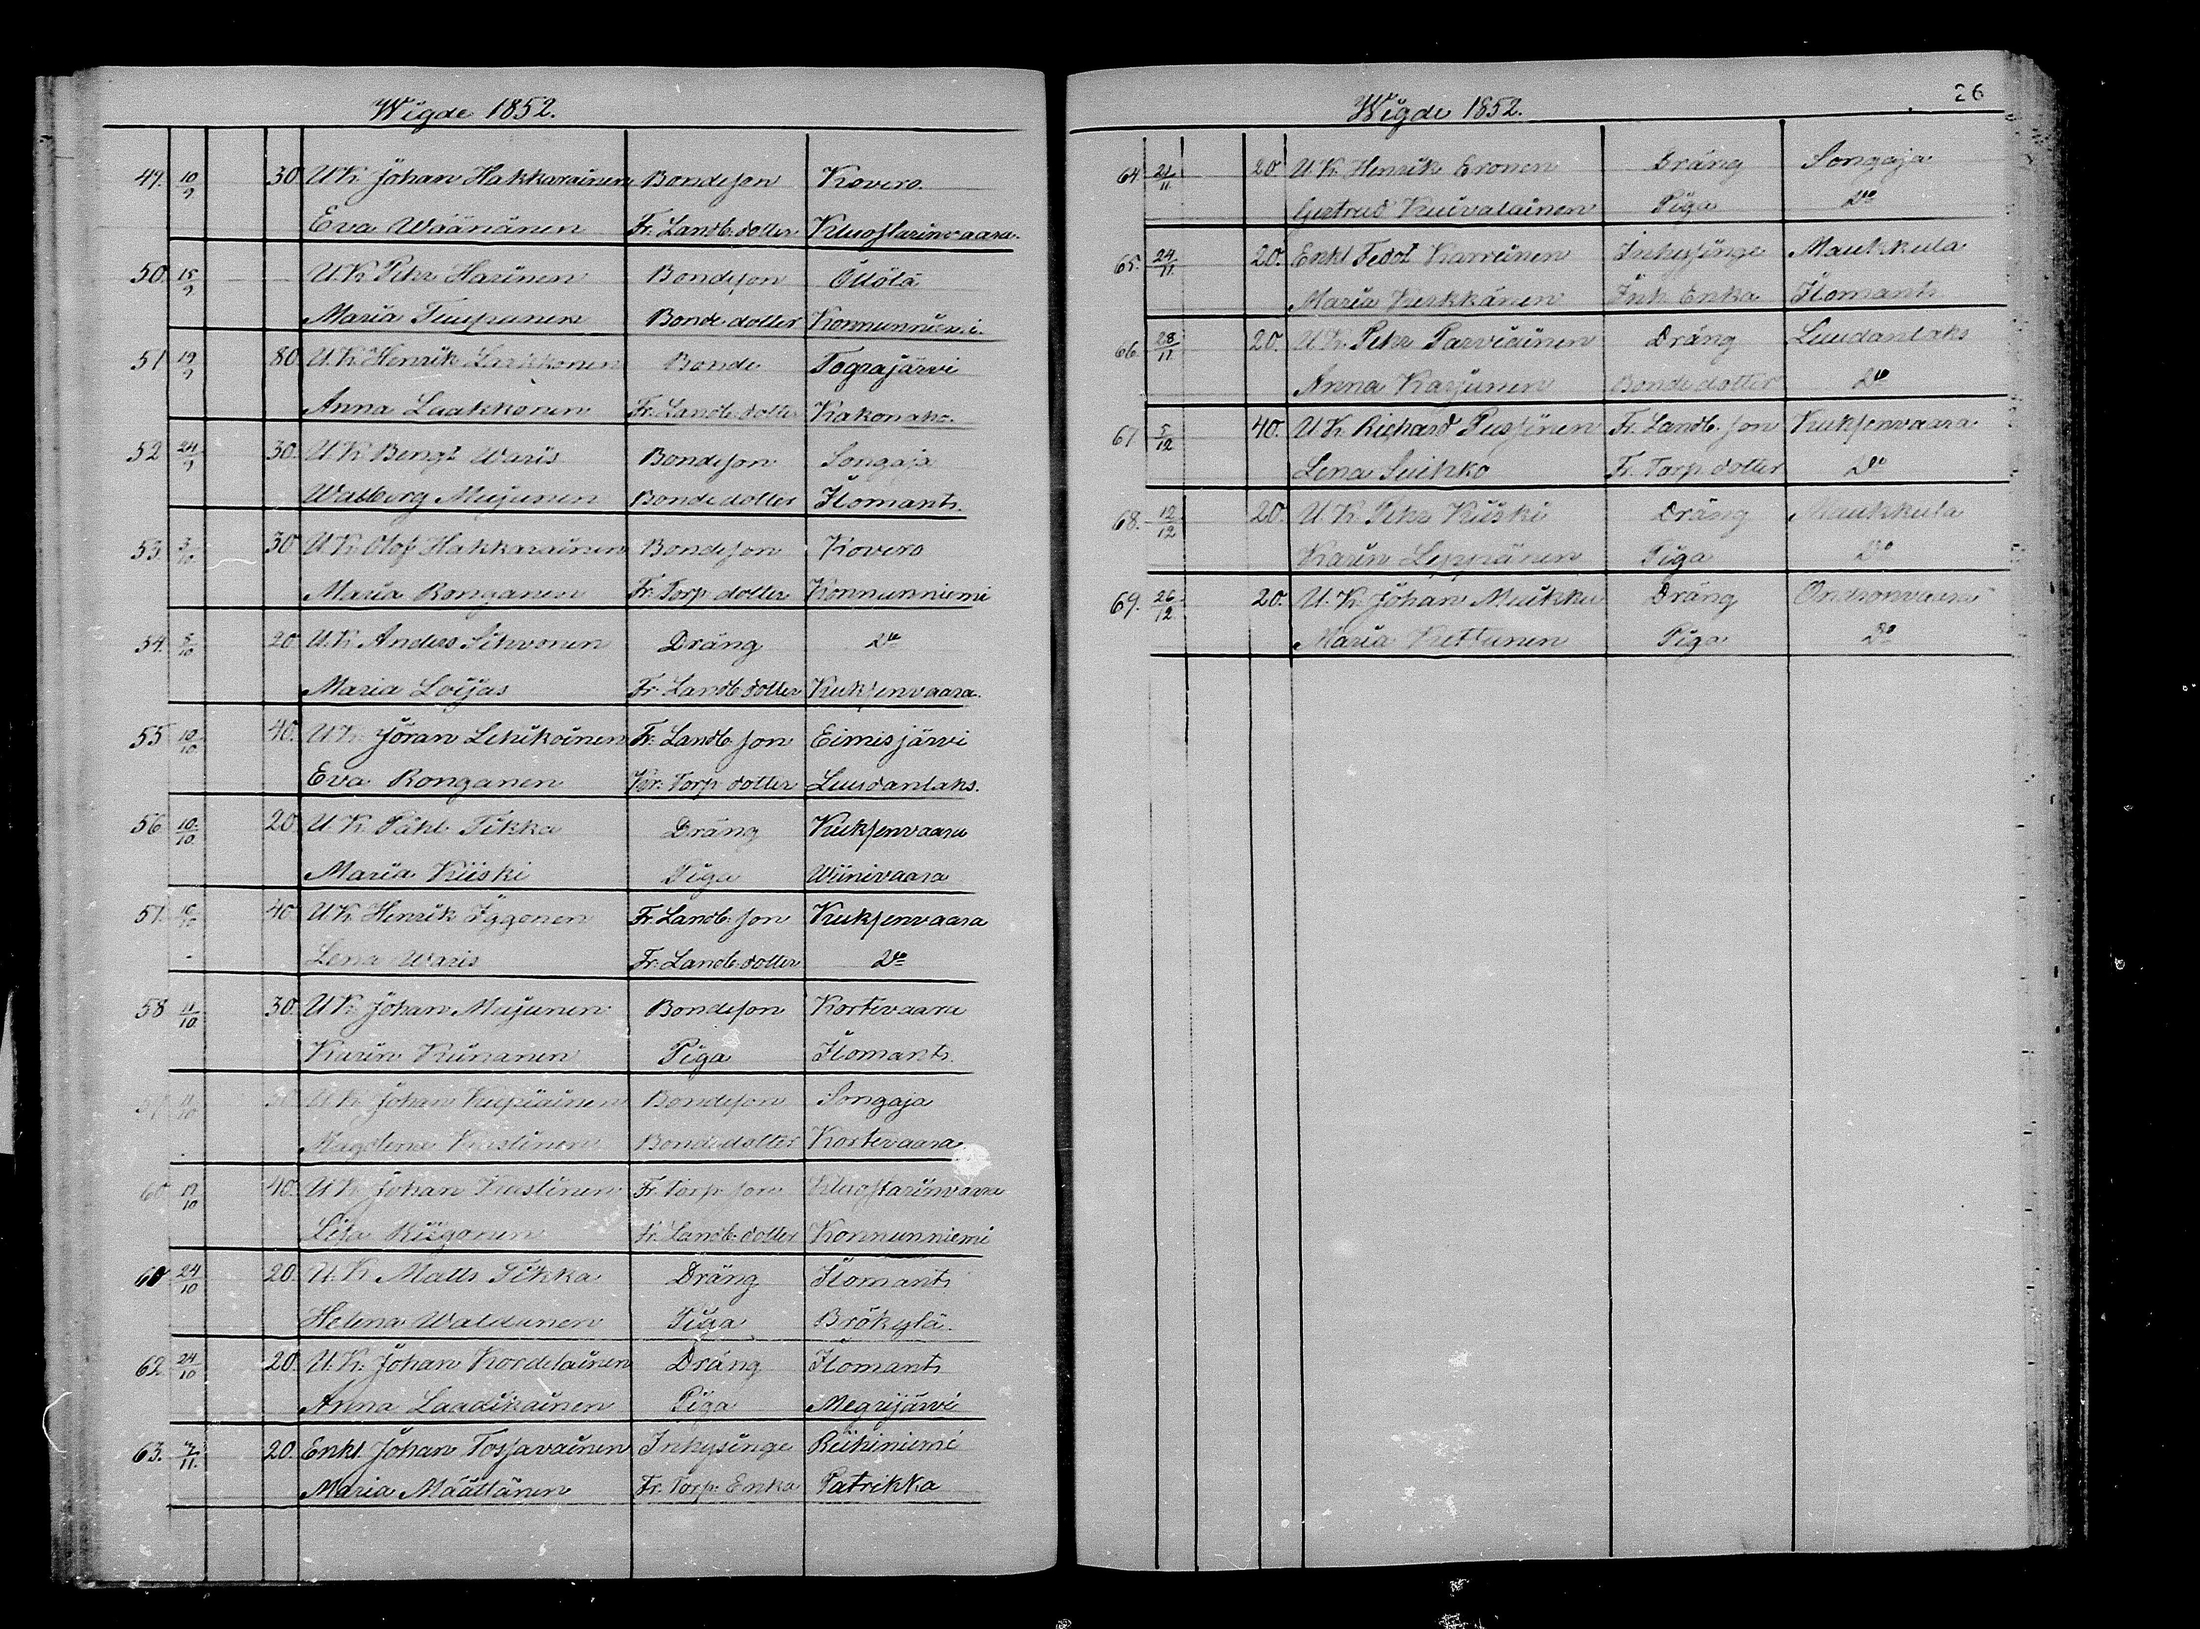 Wigde 1852.
49. 10/9 30. U.K. Johan Hakkarainen Bondeson Kovero
Eva Wäänänen Fr. Landb. dotter Kluostarinvaara.
50. 15/9 — U.K. Petr Harinen Bondeson Öllölä
Maria Timpunen Bonde dotter Konnunniemi
51 19/9 80. U.K. Henrik Bonde Tograjärvi
Anna Laakkonen Fr. Landb. dotter Kakonaho.
52 24/9 30. U.K. Bengt Waris Bondeson Songaja
Walborg Mujunen Bonde dotter Ilomants.
53. 3/10. 30. U.K. Olof Hakkarainen Bondeson Kovero
Maria Ronganen Fr. Torp. dotter Konnunniemi
54. 5/10 20 U.K. Anders Sihvonen Dräng Do
Maria Loijas Fr. Landb. dotter Kuksenvaara.
55 10/10 40. U.K. Jöran Lehikoinen Fr. Landb. son Eimisjärvi
Eva Ronganen Fr. Torp. dotter Luudanlaks.
56 10/10. 20 U.K. Påhl Sikka Dräng Kuksenvaara
Maria Kiiski Piga Wiinivaara
57. 10/10 40. U.K. Henrik Iggonen Fr. Landb. son Kuksenvaara
Lena Waris Fr. Landb. dotter Do
58 11/10. 30. U.K. Johan Mujunen Bondeson Kortevaara
Karin Kiinanen Piga Ilomants.
59 11/10 30 U.K. Johan Kupiainen Bondeson Songaja
Magdlena Bonde dotter Kortevaara
60 17/10 40. U.K. Johan Fr. Torp. son Kluostarinvaara
Lisa Riigonen Fr. Landb. dotter Konnunniemi
60 24/10 20. U.K. Matts Sikka Dräng Ilomants
Helena Waldunen Piga Brökylä.
62. 24/10 20. U.K. Johan Kordelainen Dräng Ilomants
Anna Laadikainen Piga Megrijärvi
63. 7/11. 20. Enkl. Johan Tossavainen Inhysinge Riihiniemi
Maria Määttänen Fr. Torp. Enka Patrikka
Wigde 1852. 26
64 21/11. 20 U.K. Henrik Eronen Dräng Songaja
Gertrud Kuivalainen Piga Do
65. 24/11. 20. Enkl. Fedot Karvinen Inhysinge Maukkula
Maria Kerkkänen Inh. Enka Ilomants
66. 28/11. 20. U.K. Petr Parviainen Dräng Luudanlaks
Anna Karjunen Bonde dotter Do
67 5/12 40. U.K. Richard Pussinen Fr. Landb. son Kuksenvaara
Lena Suihko Fr. Torp. dotter Do
68. 12/12 20. U.K. Petr Kiiski Dräng Maukkula
Karin Leppänen Piga Do
69. 26/12. 20. U.K. Johan Muikku Dräng Ondronvaara
Maria Kettunen Piga Do